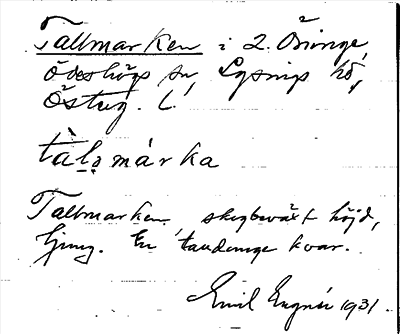 Tallmarken i 2. Öninge,
Ödeshögs sn, Lysings hd,
Östug. l.
tàlₒmárka
Tallmarken, skogbeväxt höjd,
ljung. En tandunge kvar.
Emil Engnér 1931